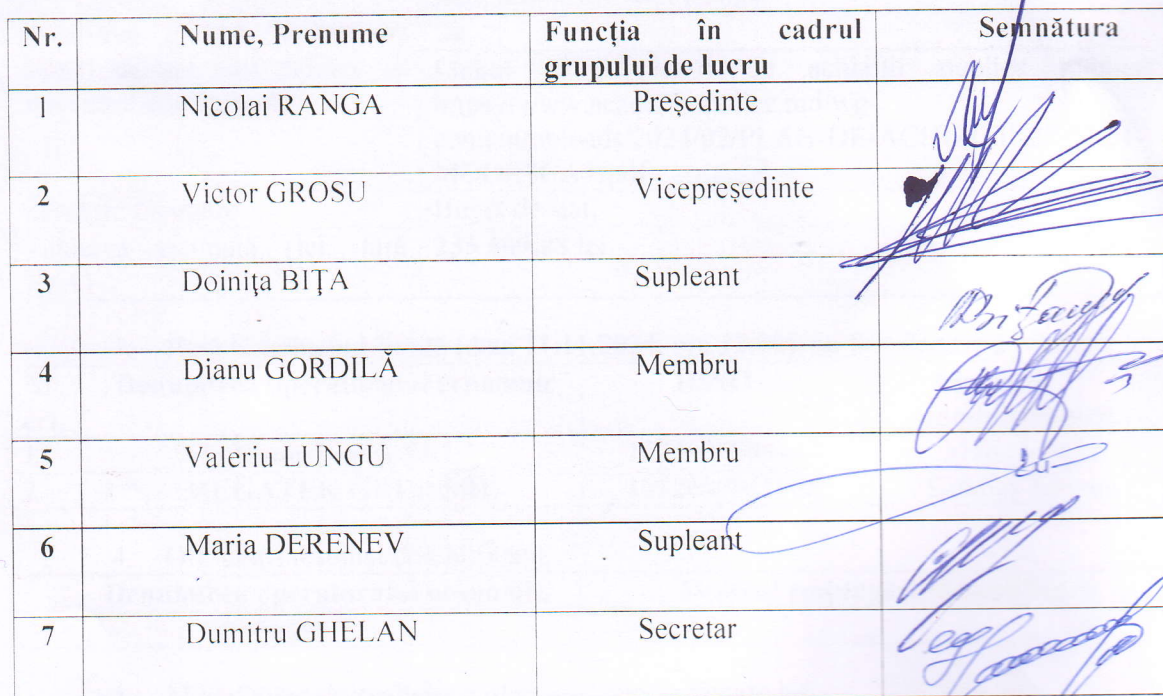 Nr. Nume, Prenume Funcția în cadrul Semnătura
grupului de lucru
1 Nicolai RANGA Președinte
2 Victor GROSU Vicepreședinte
3 Doinița BIȚA Supleant
4 Dianu GORDILĂ Membru
5 Valeriu LUNGU Membru
6 Maria DERENEV Supleant
7 Dumitru GHELAN Secretar